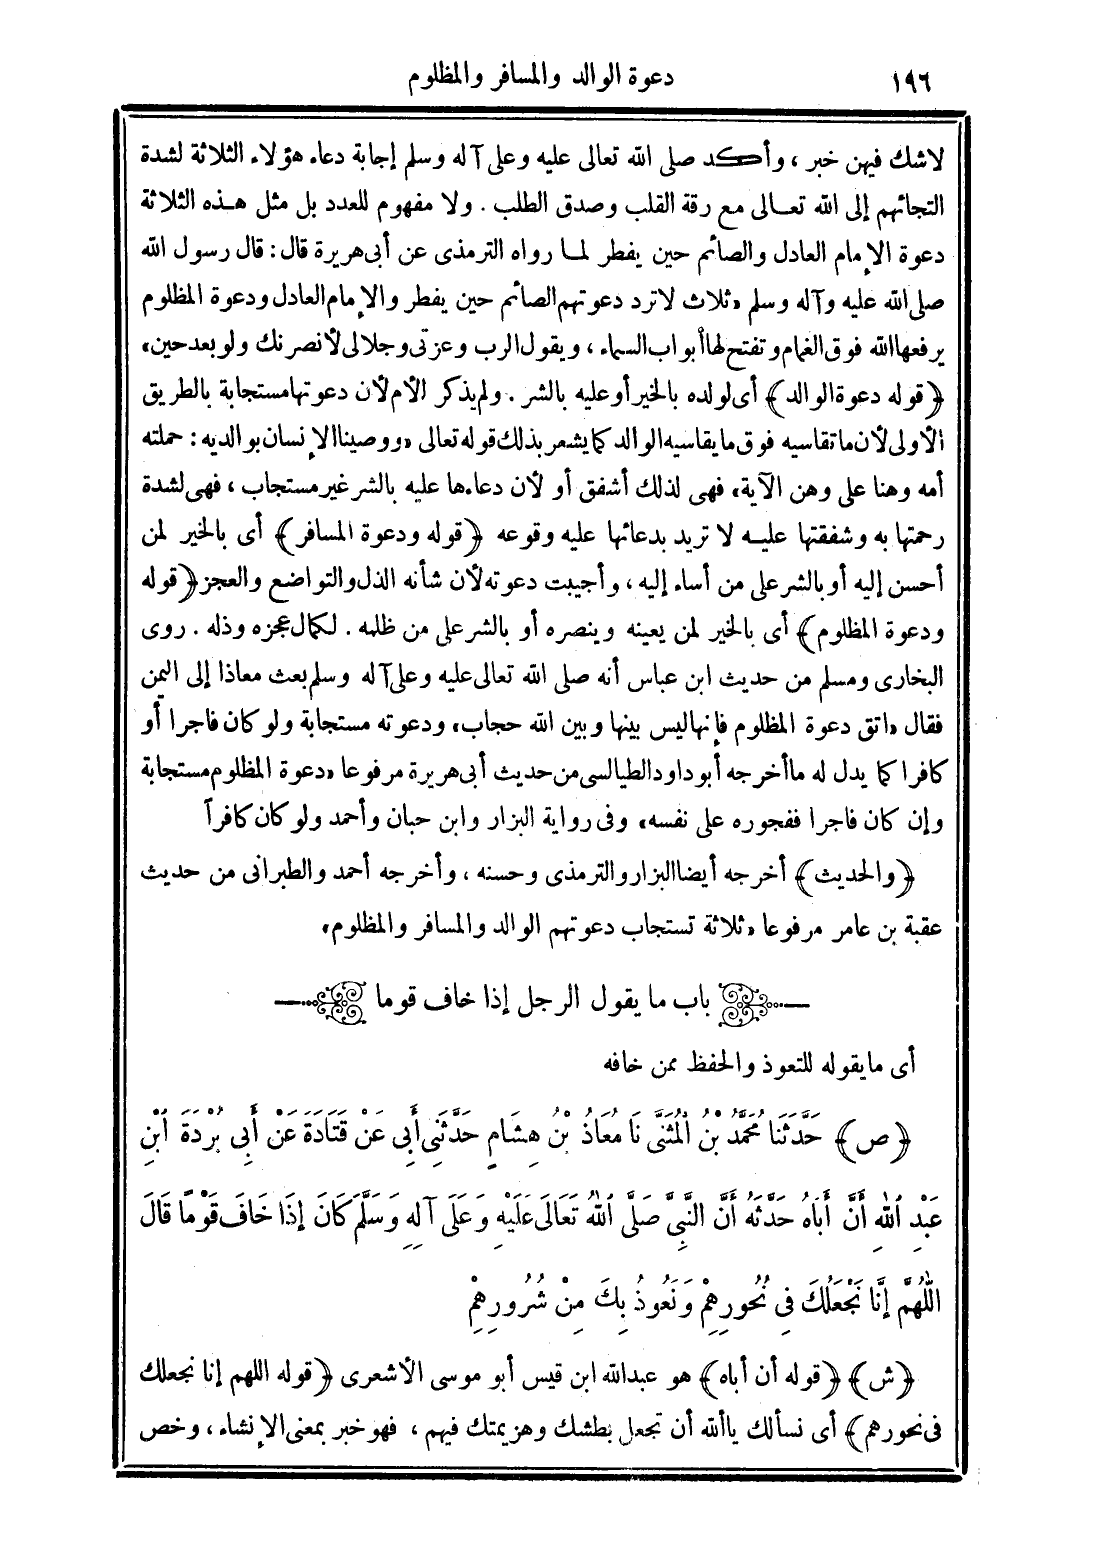 ١٩٦ دعوة الوالد والمسافر والمظلوم
لاشك فيهن خبر ، وأكد صلى الله تعالى عليه وعلى آله وسلم إجابة دعاء هؤلاء الثلاثة لشدة
التجائهم إلى الله تعالى مع رقة القلب وصدق الطلب . ولا مفهوم للعدد بل مثل هذه الثلاثة
دعوة الإمام العادل والصائم حين يفطر لما رواه الترمذى عن أبى هريرة قال : قال رسول الله
صلى الله عليه وآله وسلم «ثلاث لاترد دعوتهم الصائم حين يفطر والإمام العادل ودعوة المظلوم
يرفعها الله فوق الغمام وتفتح لها أبواب السماء ، ويقول الرب وعزتى وجلالى لأنصرنك ولو بعد حين»
﴿قوله دعوة الوالد﴾ أى لولده بالخير أو عليه بالشر . ولم يذكر الأم لأن دعوتها مستجابة بالطريق
الأولى لأن ما تقاسيه فوق ما يقاسيه الوالد كما يشعر بذلك قوله تعالى «ووصينا الإنسان بوالديه : حملته
أمه وهنا على وهن الآية» فهى لذلك أشفق أو لأن دعاءها عليه بالشر غير مستجاب ، فهى لشدة
رحمتها به وشفقتها عليه لا تريد بدعائها عليه وقوعه ﴿قوله ودعوة المسافر﴾ أى بالخير لمن
أحسن إليه أو بالشر على من أساء إليه ، وأجيبت دعوته لأن شأنه الذل والتواضع والعجز ﴿قوله
ودعوة المظلوم﴾ أى بالخير لمن يعينه وينصره أو بالشر على من ظلمه . لكمال عجزه وذله . روى
البخارى ومسلم من حديث ابن عباس أنه صلى الله تعالى عليه وعلى آله وسلم بعث معاذا إلى اليمن
فقال «اتق دعوة المظلوم فإنها ليس بينها وبين الله حجاب» ودعوته مستجابة ولو كان فاجرا أو
كافرا كما يدل له ما أخرجه أبو داود الطيالسى من حديث أبى هريرة مرفوعا «دعوة المظلوم مستجابة
وإن كان فاجرا ففجوره على نفسه» وفى رواية البزار وابن حبان وأحمد ولو كان كافراً
﴿والحديث﴾ أخرجه أيضا البزار والترمذى وحسنه ، وأخرجه أحمد والطبرانى من حديث
عقبة بن عامر مرفوعا «ثلاثة تستجاب دعوتهم الوالد والمسافر والمظلوم»
باب ما يقول الرجل إذا خاف قوما
أى مايقوله للتعوذ والحفظ ممن خافه
﴿ص﴾ حَدَّثَنَا مُحَمَّدُ بْنُ الْمُثَنَّى نَا مُعَاذُ بْنُ هِشَامٍ حَدَّثَنِى أَبِى عَنْ قَتَادَةَ عَنْ أَبِى بُرْدَةَ ابْنِ
عَبْدِ اللهِ أَنَّ أَبَاهُ حَدَّثَهُ أَنَّ النَّبِىَّ صَلَّى اللهُ تَعَالَى عَلَيْهِ وَعَلَى آلِهِ وَسَلَّمَ كَانَ إِذَا خَافَ قَوْمًا قَالَ
اللّٰهُمَّ إِنَّا نَجْعَلُكَ فِى نُحُورِهِمْ وَنَعُوذُ بِكَ مِنْ شُرُورِهِمْ
﴿ش﴾ ﴿قوله أن أباه﴾ هو عبدالله ابن قيس أبو موسى الأشعرى ﴿قوله اللهم إنا نجعلك
فى نحورهم﴾ أى نسألك ياألله أن تجعل بطشك وهزيمتك فيهم ، فهو خبر بمعنى الإنشاء ، وخص